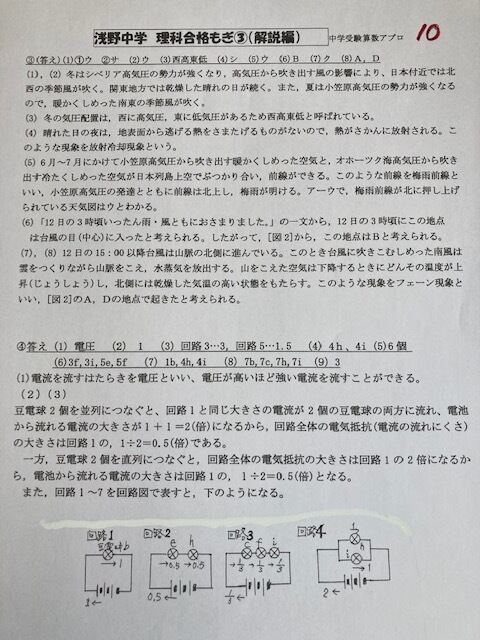 浅野中学 理科合格もぎ③(解説編) 中学受験算数アブロ 10
③(答え) (1)①ウ ②サ (2)ウ (3)西高東低 (4)シ (5)ウ (6)B (7)ク (8)A, D
(1), (2) 冬はシベリア高気圧の勢力が強くなり, 高気圧から吹き出す風の影響により, 日本付近では北
西の季節風が吹く。関東地方では乾燥した晴れの日が続く。また, 夏は小笠原高気圧の勢力が強くなる
ので, 暖かくしめった南東の季節風が吹く。
(3) 冬の気圧配置は, 西に高気圧, 東に低気圧があるため西高東低と呼ばれている。
(4) 晴れた日の夜は, 地表面から逃げる熱をさまたげるものがないので, 熱がさかんに放射される。こ
のような現象を放射冷却現象という。
(5) 6月~7月にかけて小笠原高気圧から吹き出す暖かくしめった空気と, オホーツク海高気圧から吹き
出す冷たくしめった空気が日本列島上空でぶつかり合い, 前線ができる。このような前線を梅雨前線と
いい, 小笠原高気圧の発達とともに前線は北上し, 梅雨が明ける。ア~ウで, 梅雨前線が北に押し上げ
られている天気図はウとわかる。
(6) 「12日の3時頃いったん雨・風ともにおさまりました。」の一文から, 12日の3時頃にこの地点
は台風の目(中心)に入ったと考えられる。したがって, [図2]から, この地点はBと考えられる。
(7), (8) 12日の15:00以降台風は山脈の北側に進んでいる。このとき台風に吹きこむしめった南風は
雲をつくりながら山脈をこえ, 水蒸気を放出する。山をこえた空気は下降するときにどんその温度が上
昇(じょうしょう)し, 北側には乾燥した気温の高い状態をもたらす。このような現象をフェーン現象と
いい, [図2]のA, Dの地点で起きたと考えられる。
④答え (1) 電圧 (2) 1 (3) 回路3…3, 回路5…1.5 (4) 4h, 4i (5)6個
(6)3f,3i,5e,5f (7) 1b,4h,4i (8) 7b,7c,7h,7i (9) 3
(1)電流を流すはたらきを電圧といい, 電圧が高いほど強い電流を流すことができる。
(2)(3)
豆電球2個を並列につなぐと, 回路1と同じ大きさの電流が2個の豆電球の両方に流れ, 電池
から流れる電流の大きさが1+1=2(倍)になるから, 回路全体の電気抵抗(電流の流れにくさ)
の大きさは回路1の, 1÷2=0.5(倍)である。
一方, 豆電球2個を直列につなぐと, 回路全体の電気抵抗の大きさは回路1の2倍になるか
ら, 電池から流れる電流の大きさは回路1の, 1÷2=0.5(倍)となる。
また, 回路1~7を回路図で表すと, 下のようになる。
回路1 回路2 回路3 回路4
豆電球b e h c f i h i
1 →1 →0.5 →0.5 →1/3 →1/3 →1/3 →1
1← 0.5← 1/3← 2←